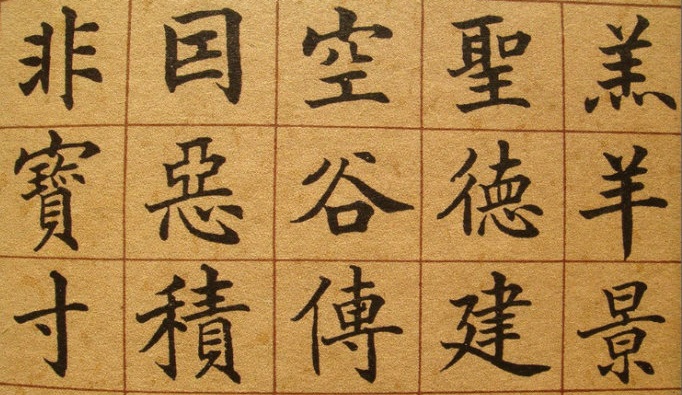 羔羊景
聖徳建
空谷傳
囙惡積
非寶寸